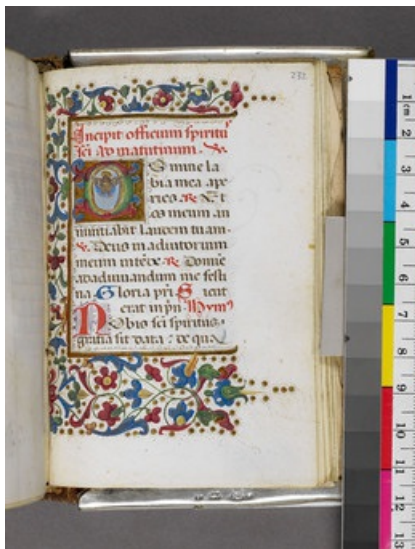 232
Incipit officium spiritu
sci ad matutinum. V
Domine la
bia mea ape
ries. R. Et
os meum an
nuntiabit laudem tuam.
V. Deus in adiutorium
meum intēde. R. Domīe
ad adiuuandum me festi
na. Gloria pr̄i. Sicut
erat in pn̄. Hymn9
Nobis sci spiritus.
gratia sit data: de qua
1 cm
2
3
4
5
6
7
8
9
10
11
12
13